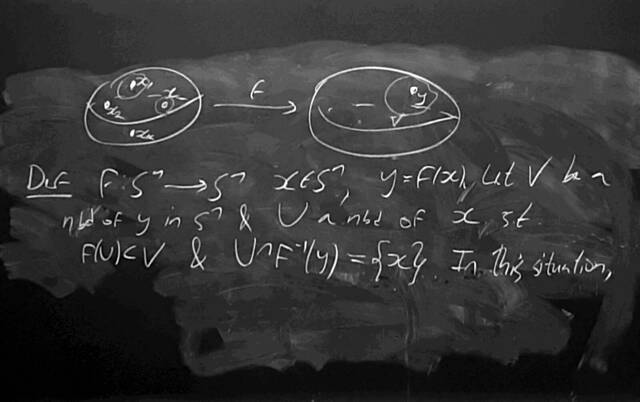 x₁ x
x₂
xₖ
f
y
V
Def f: Sⁿ → Sⁿ x∈Sⁿ, y=f(x), let V be a
nbd of y in Sⁿ & U a nbd of x st.
f(U)⊂V & U∩f⁻¹(y)={x}. In this situation,